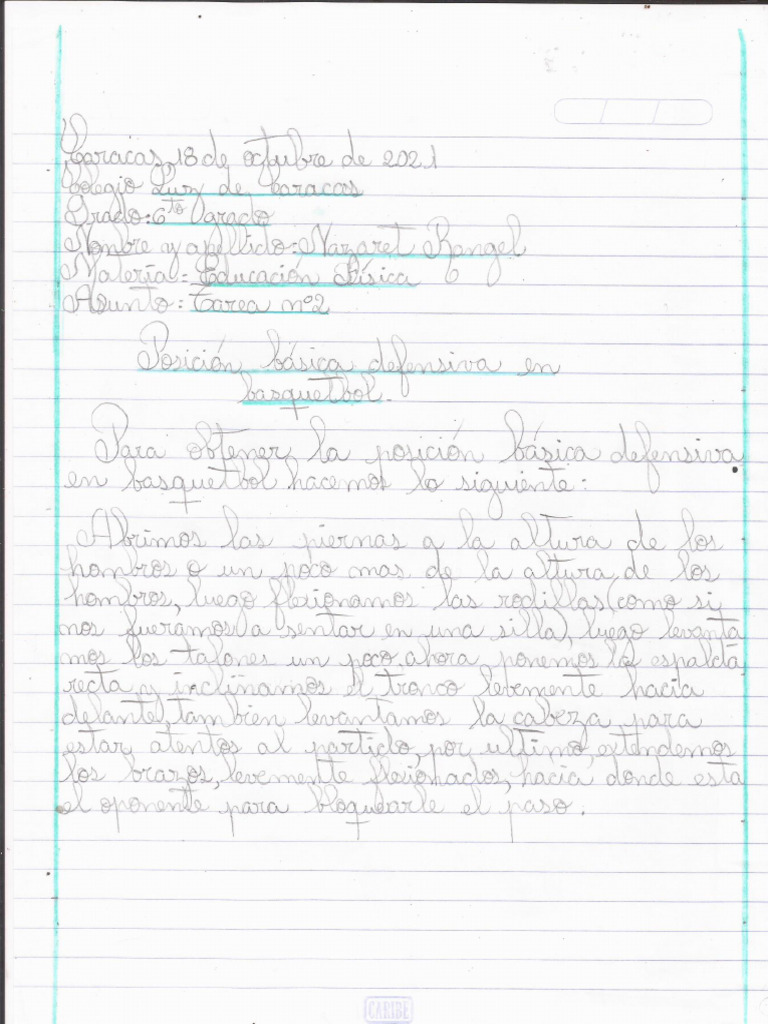 Caracas, 18 de octubre de 2021
Colegio Luz de Caracas
Grado: 6to Grado
Nombre y apellido: Nazaret Rangel
Materia: Educación Física
Asunto: Tarea nº2
Posición básica defensiva en
basquetbol.
Para obtener la posición básica defensiva
en basquetbol hacemos lo siguiente:
Abrimos las piernas a la altura de los
hombros o un poco mas de la altura de los
hombros, luego flexionamos las rodillas (como si
nos fueramos a sentar en una silla), luego levanta
mos los talones un poco, ahora ponemos la espalda
recta y inclinamos el tronco levemente hacia
delante, tambien levantamos la cabeza para
estar atentos al partido, por ultimo, extendemos
los brazos, levemente flexionados, hacia donde esta
el oponente para bloquearle el paso.
CARIBE